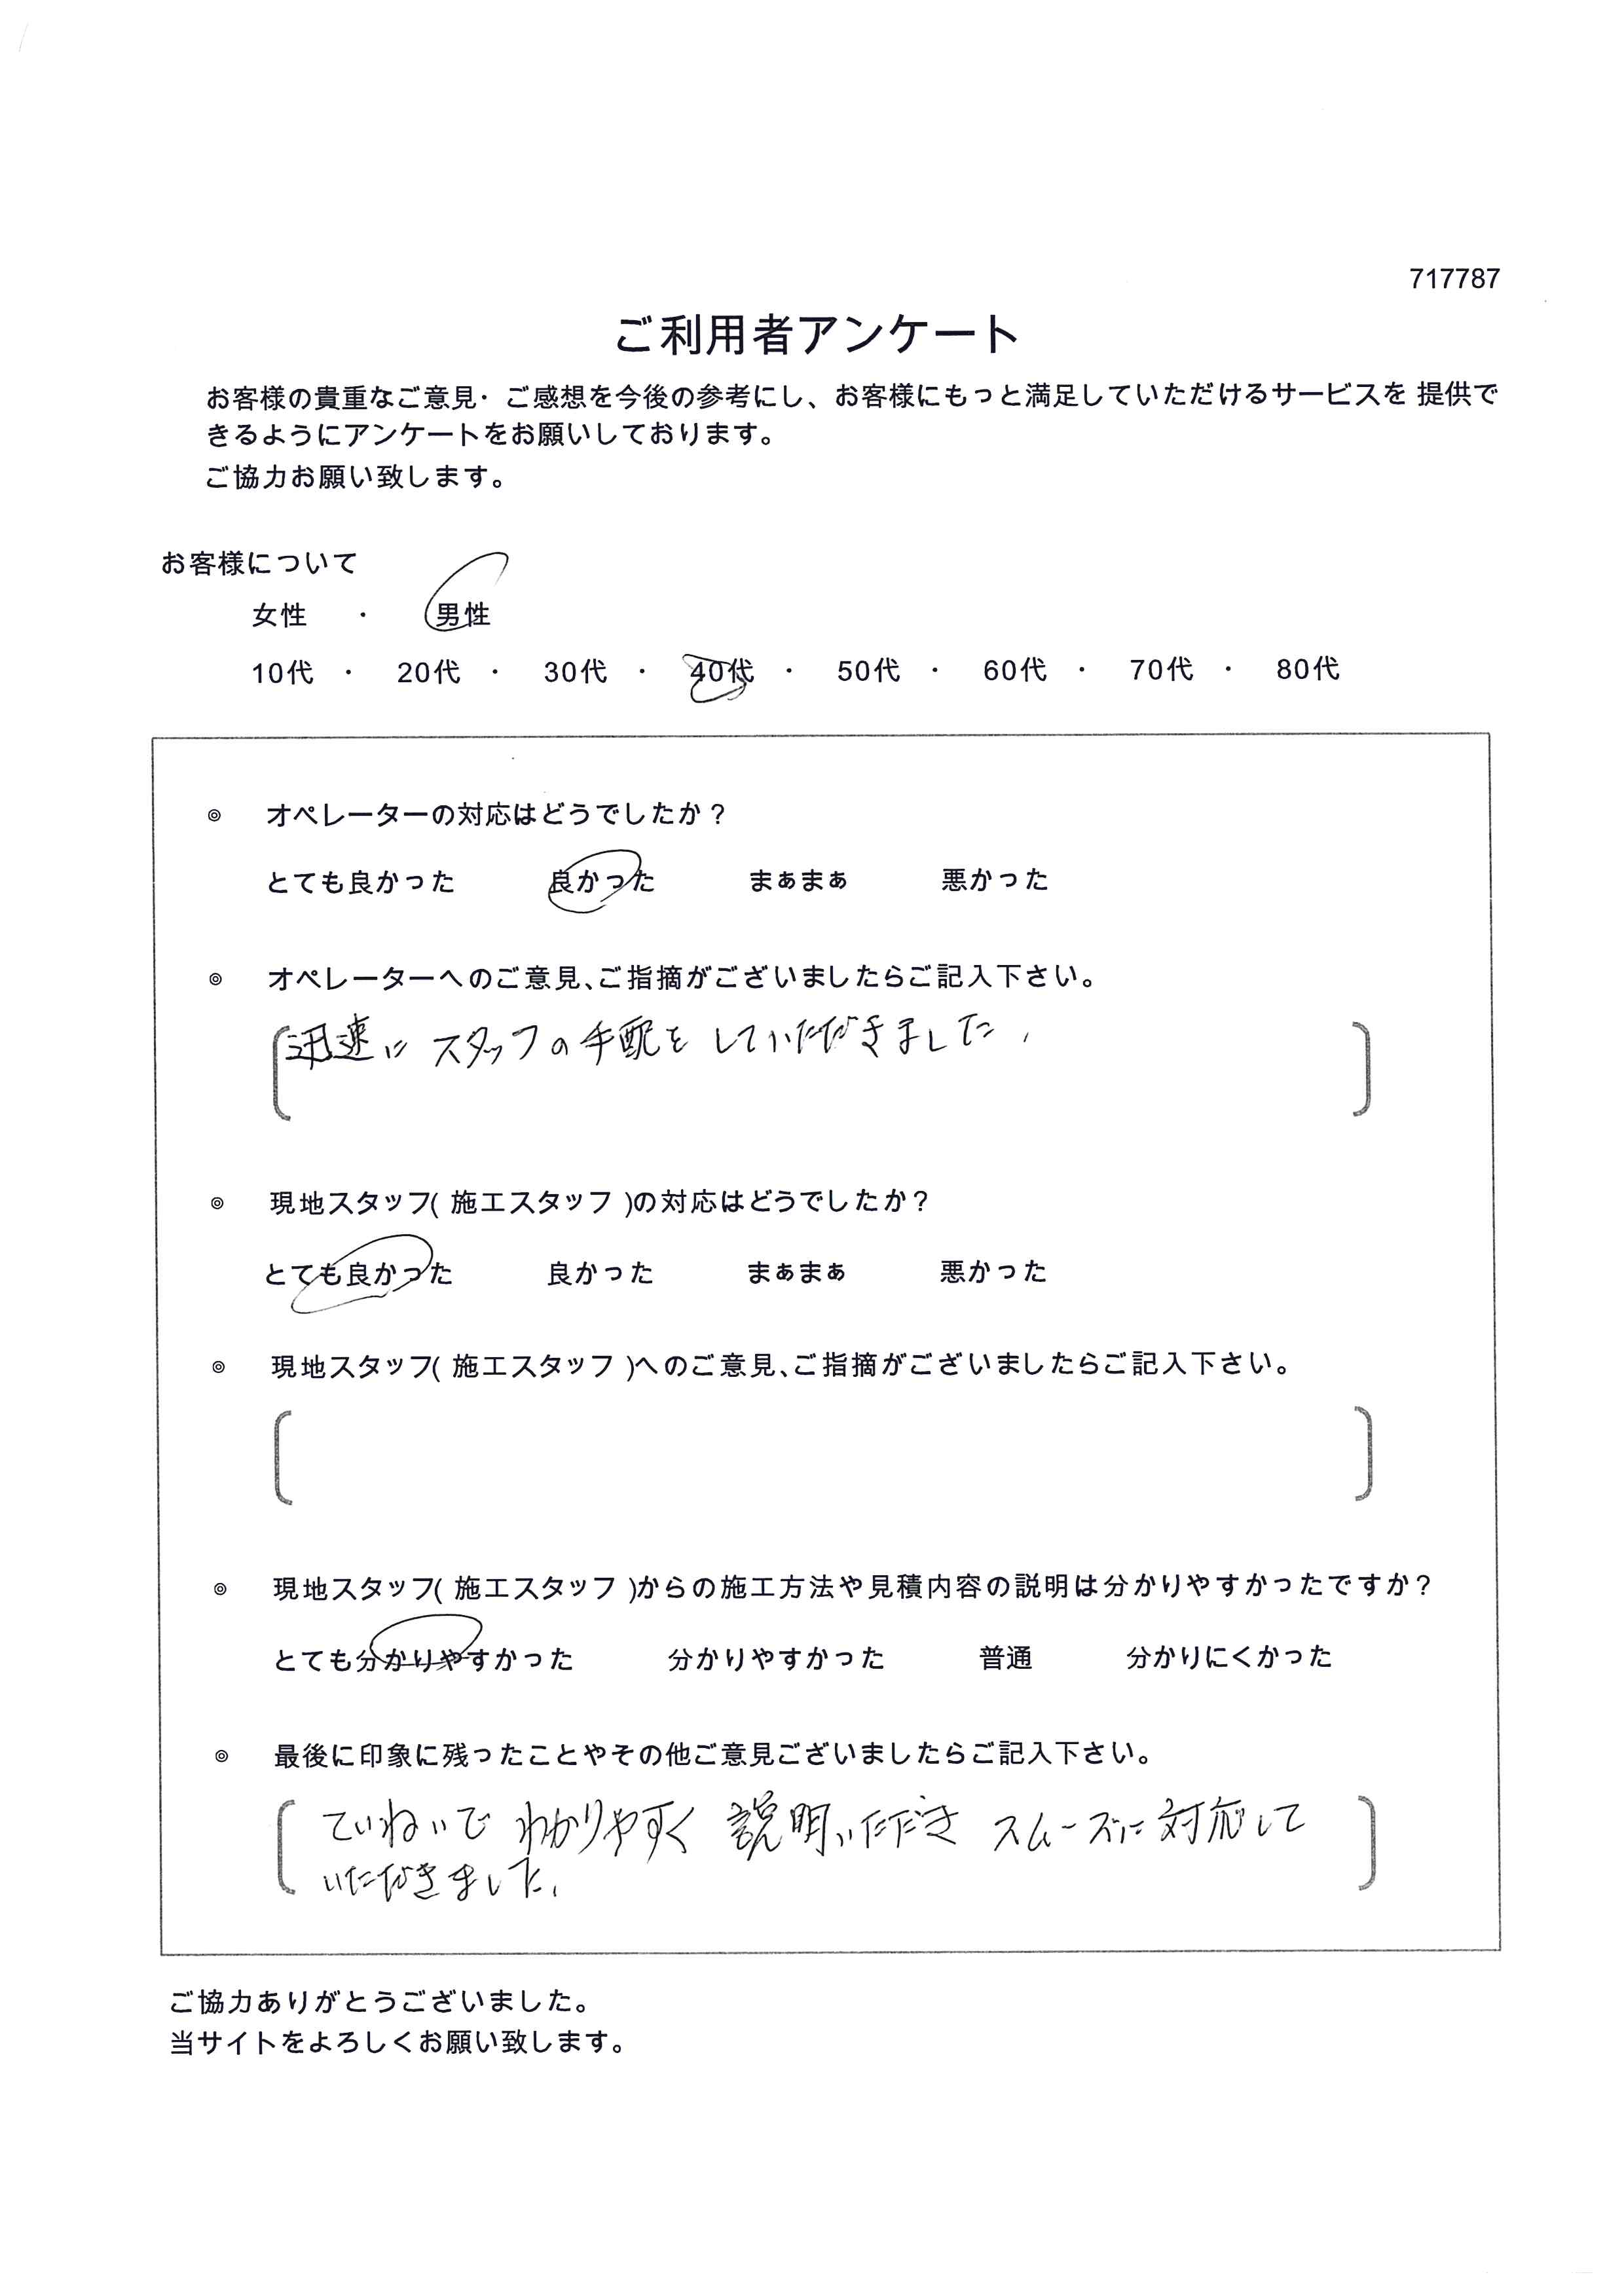 717787
ご利用者アンケート
お客様の貴重なご意見・ご感想を今後の参考にし、お客様にもっと満足していただけるサービスを 提供で
きるようにアンケートをお願いしております。
ご協力お願い致します。
お客様について
女性 ・ 男性
10代 ・ 20代 ・ 30代 ・ 40代 ・ 50代 ・ 60代 ・ 70代 ・ 80代
◎ オペレーターの対応はどうでしたか？
とても良かった 良かった まぁまぁ 悪かった
◎ オペレーターへのご意見、ご指摘がございましたらご記入下さい。
迅速に スタッフの手配を していただきました。
◎ 現地スタッフ( 施工スタッフ )の対応はどうでしたか？
とても良かった 良かった まぁまぁ 悪かった
◎ 現地スタッフ( 施工スタッフ )へのご意見、ご指摘がございましたらご記入下さい。
◎ 現地スタッフ( 施工スタッフ )からの施工方法や見積内容の説明は分かりやすかったですか？
とても分かりやすかった 分かりやすかった 普通 分かりにくかった
◎ 最後に印象に残ったことやその他ご意見ございましたらご記入下さい。
ていねいで わかりやすく 説明いただき スムーズに対応して
いただきました。
ご協力ありがとうございました。
当サイトをよろしくお願い致します。